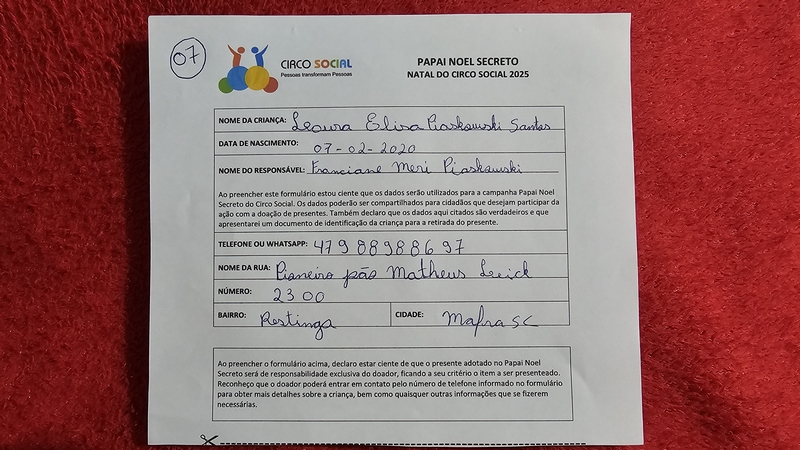 07
CIRCO SOCIAL
Pessoas transformam Pessoas
PAPAI NOEL SECRETO
NATAL DO CIRCO SOCIAL 2025
NOME DA CRIANÇA: Leaura Elisa Piaskowski Santos
DATA DE NASCIMENTO: 07-02-2020
NOME DO RESPONSÁVEL: Franciane Meri Piaskowski
Ao preencher este formulário estou ciente que os dados serão utilizados para a campanha Papai Noel
Secreto do Circo Social. Os dados poderão ser compartilhados para cidadãos que desejam participar da
ação com a doação de presentes. Também declaro que os dados aqui citados são verdadeiros e que
apresentarei um documento de identificação da criança para a retirada do presente.
TELEFONE OU WHATSAPP: 47988988697
NOME DA RUA: Matheus
NÚMERO: 2300
BAIRRO: Restinga CIDADE: Mafra SC
Ao preencher o formulário acima, declaro estar ciente de que o presente adotado no Papai Noel
Secreto será de responsabilidade exclusiva do doador, ficando a seu critério o item a ser presenteado.
Reconheço que o doador poderá entrar em contato pelo número de telefone informado no formulário
para obter mais detalhes sobre a criança, bem como quaisquer outras informações que se fizerem
necessárias.